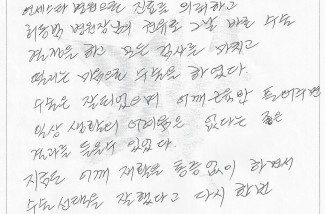 연세스타 병원으로 진료를 의뢰하고
허동범 병원장님의 권유로 그날 바로 수술
결정을 하고 모든 검사를 마치고
떨리는 마음으로 수술을 하였다.
수술은 잘되었으며 어깨 근육만 풀어주면
일상 생활의 어려움은 없다는 좋은
결과를 들을수 있었다.
지금은 어깨 재활을 통증없이 하면서
수술 선택을 잘했다고 다시 한번